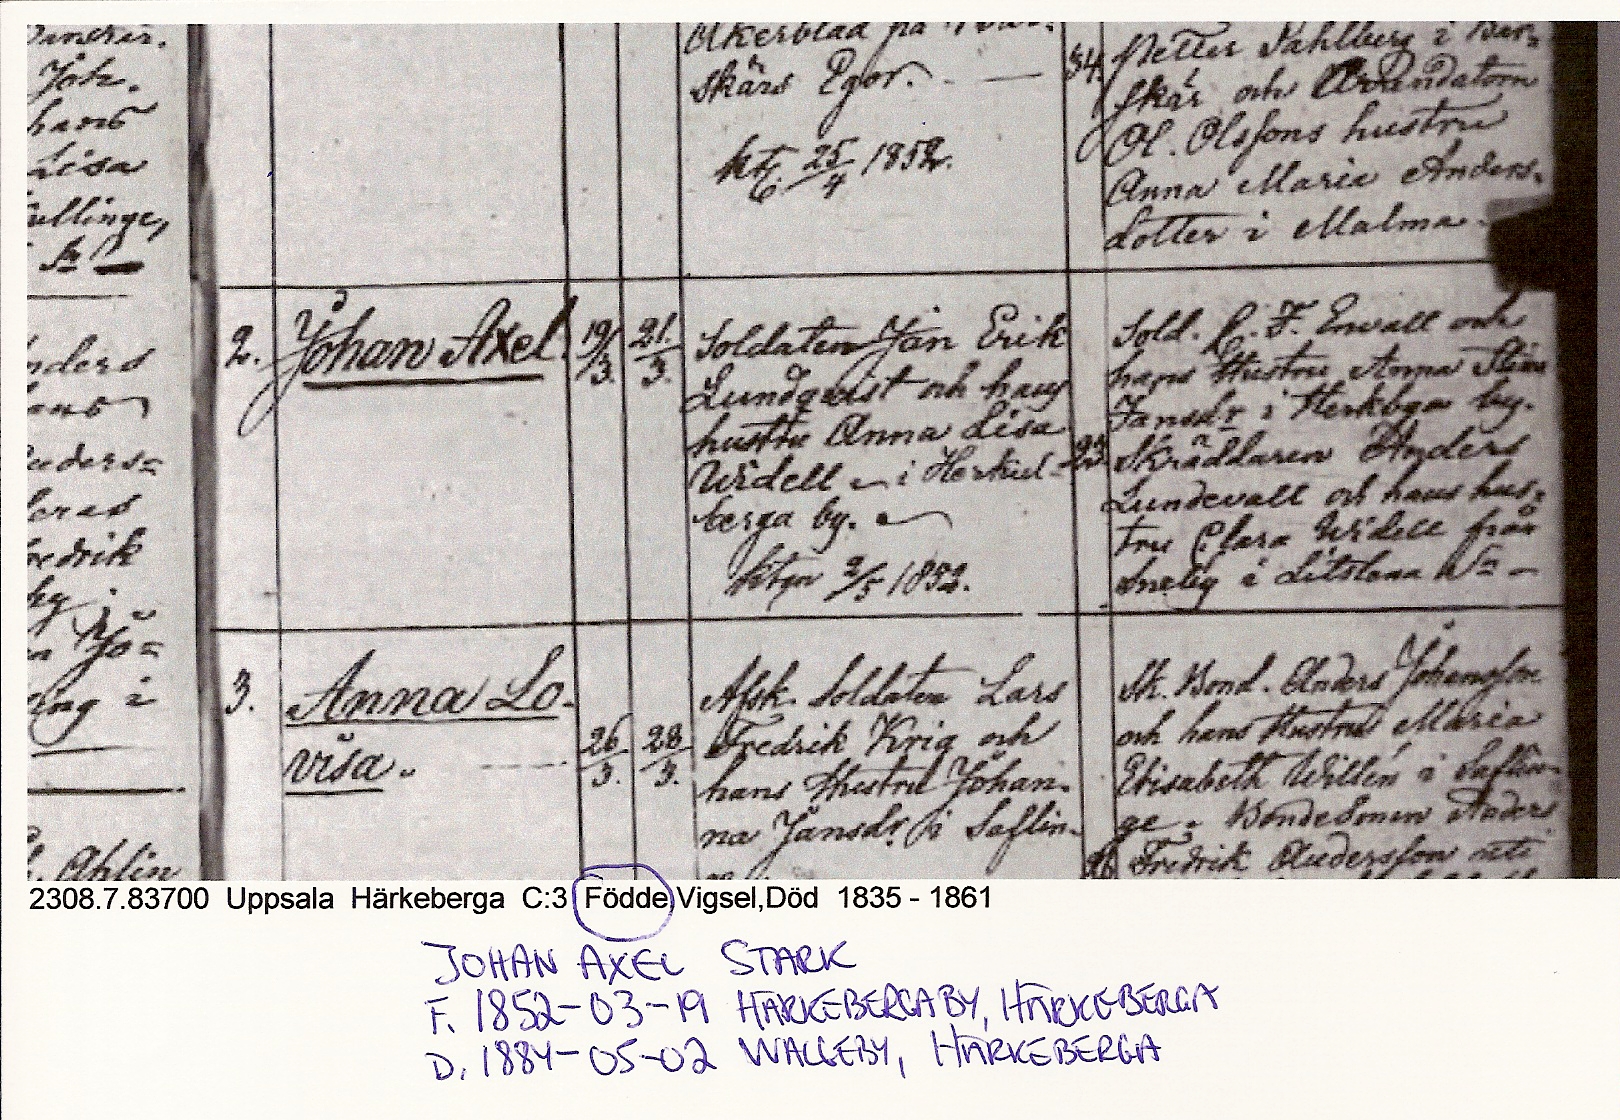 anders.
Joh.
hans
Lisa
Sr
Åkerblad på
skärs Egor. —
ktg. 25/4 1852.
34.
Petter Dahlberg i Bar-
skär och Arrendatorn
Ol. Olssons hustru
Anna Maria Anders-
dotter i Malma
nders
Anders=
fredrik
Jo=
i
Ahlin
2. Johan Axel. 19/3. 21/3.
Soldaten Jan Erik
Lundqvist och hans
hustru Anna Lisa
Widell i Herkul-
berga by.
ktgn 2/5 1852.
23.
Sold. C. F. Envall och
hans Hustru Anna Stina
Jansdr i Herkbga by.
Skräddaren Anders
Lundevall och hans hus-
tru Clara Widell från
i Litslena Sn —
3. Anna Lo-
visa. 26/3. 28/3.
Afsk. Soldaten Lars
Fredrik Krig och
hans Hustru Johan-
na Jansdr. i Saflin-
Sk. Bond. Anders Johansson
och hans Hustru Maria
Elisabeth Willén i Saflin-
ge. Bondesonen Anders
Fredrik Andersson uti
2308.7.83700 Uppsala Härkeberga C:3 Födde,Vigsel,Död 1835 - 1861
JOHAN AXEL STARK
F. 1852-03-19 HÄRKEBERGABY, HÄRKEBERGA
D. 1884-05-02 WALLEBY, HÄRKEBERGA